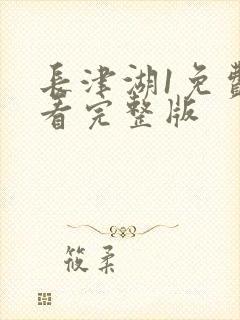 長津湖1免費
看完整版
筱柔